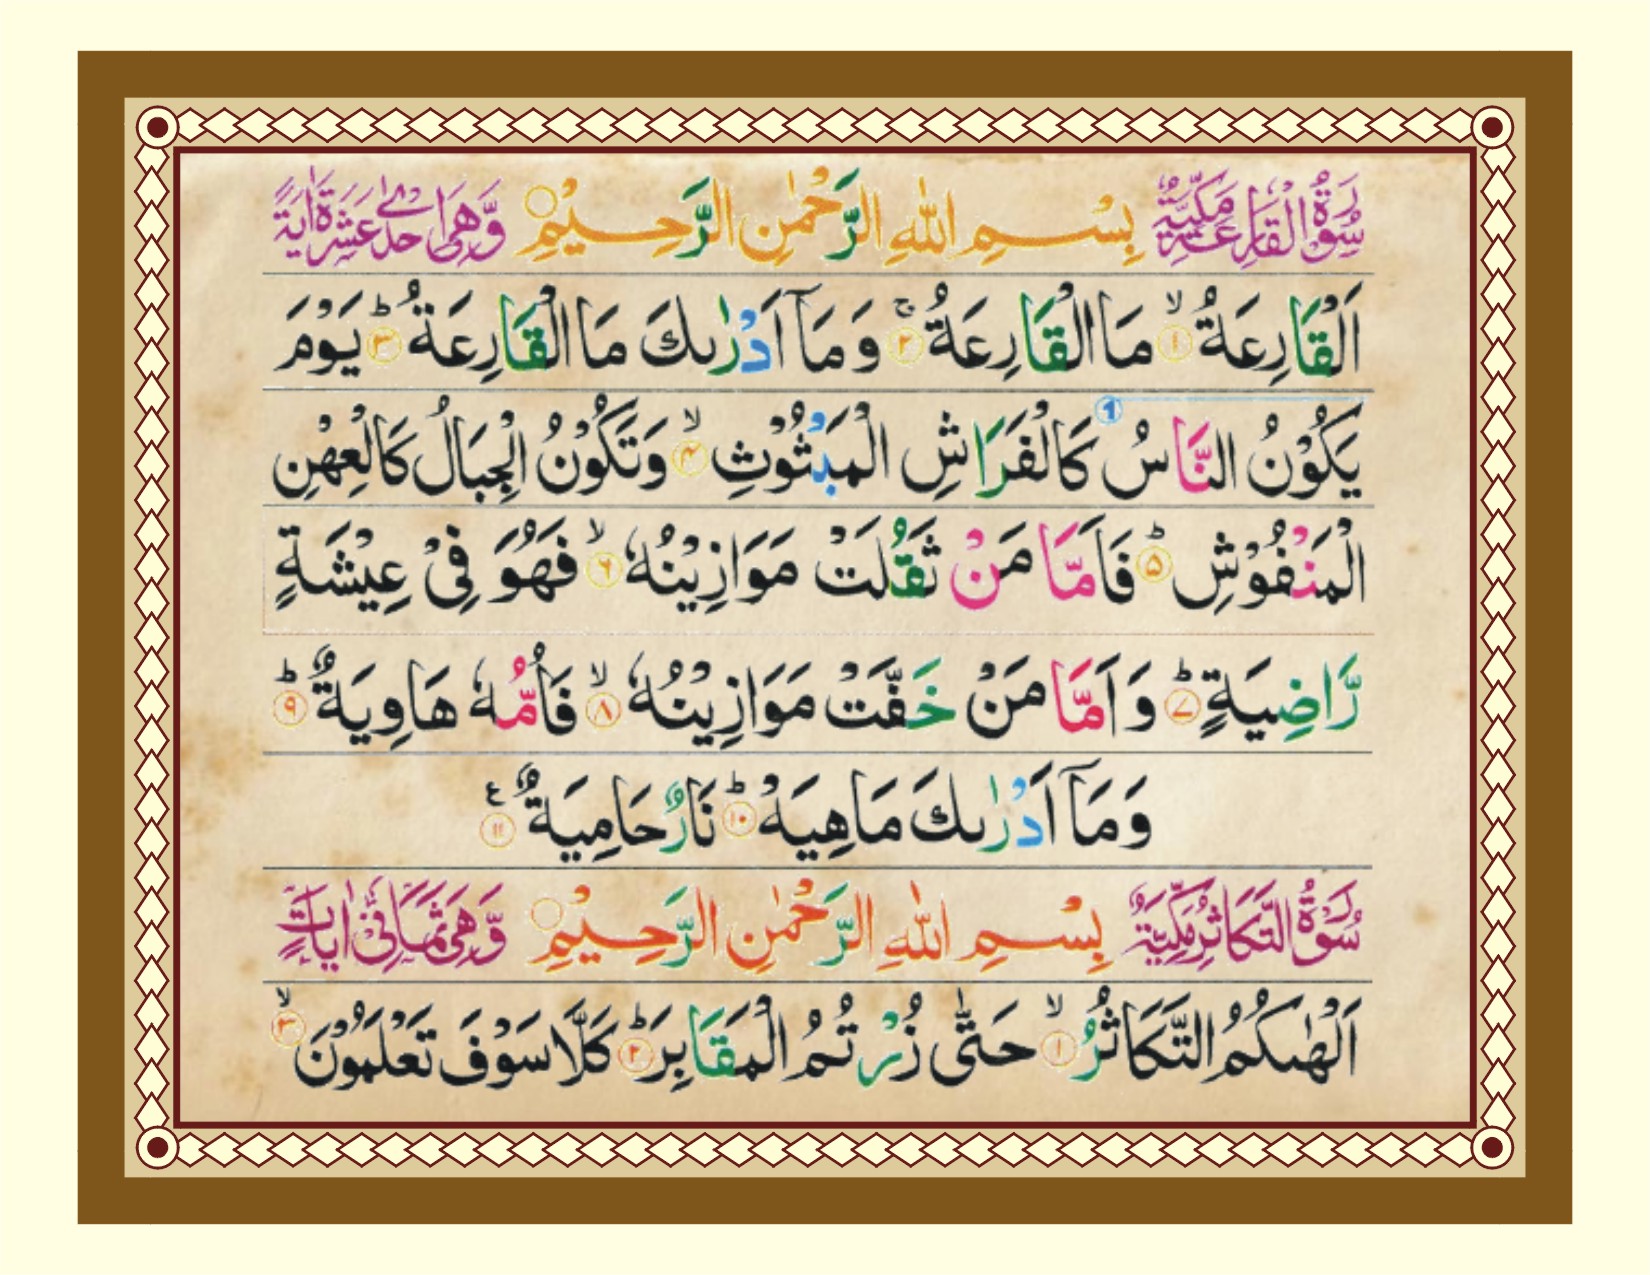 سُوۡرَةُ الۡقَارِعَةِ مَكِّيَّةٌ بِسۡمِ اللّٰهِ الرَّحۡمٰنِ الرَّحِيۡمِ ۝ وَّهِىَ اِحۡدٰى عَشَرَةَ اٰيَةً
اَلۡقَارِعَةُ ۙ‏ ﴿۱﴾ مَا الۡقَارِعَةُ​ ۚ‏ ﴿۲﴾ وَمَاۤ اَدۡرٰٮكَ مَا الۡقَارِعَةُ ؕ‏ ﴿۳﴾ يَوۡمَ
يَكُوۡنُ النَّاسُ ① كَالۡفَرَاشِ الۡمَبۡثُوۡثِۙ‏ ﴿۴﴾ وَتَكُوۡنُ الۡجِبَالُ كَالۡعِهۡنِ
الۡمَنۡفُوۡشِؕ‏ ﴿۵﴾ فَاَمَّا مَنۡ ثَقُلَتۡ مَوَازِيۡنُهٗ ۙ‏ ﴿۶﴾ فَهُوَ فِىۡ عِيۡشَةٍ
رَّاضِيَةٍ ؕ‏ ﴿۷﴾ وَاَمَّا مَنۡ خَفَّتۡ مَوَازِيۡنُهٗ ۙ‏ ﴿۸﴾ فَاُمُّهٗ هَاوِيَةٌ  ؕ‏ ﴿۹﴾
وَمَاۤ اَدۡرٰٮكَ مَا هِيَهۡ ؕ‏ ﴿۱۰﴾ نَارٌ حَامِيَةٌ ﴿۱۱﴾ ع
سُوۡرَةُ التَّكَاثُرِ مَكِّيَّةٌ بِسۡمِ اللّٰهِ الرَّحۡمٰنِ الرَّحِيۡمِ ۝ وَّهِىَ ثَمَانِىۡ اٰيَاتٍ
اَلۡهٰٮكُمُ التَّكَاثُرُ ۙ‏ ﴿۱﴾ حَتّٰى زُرۡتُمُ الۡمَقَابِرَؕ‏ ﴿۲﴾ كَلَّا سَوۡفَ تَعۡلَمُوۡنَۙ‏ ﴿۳﴾